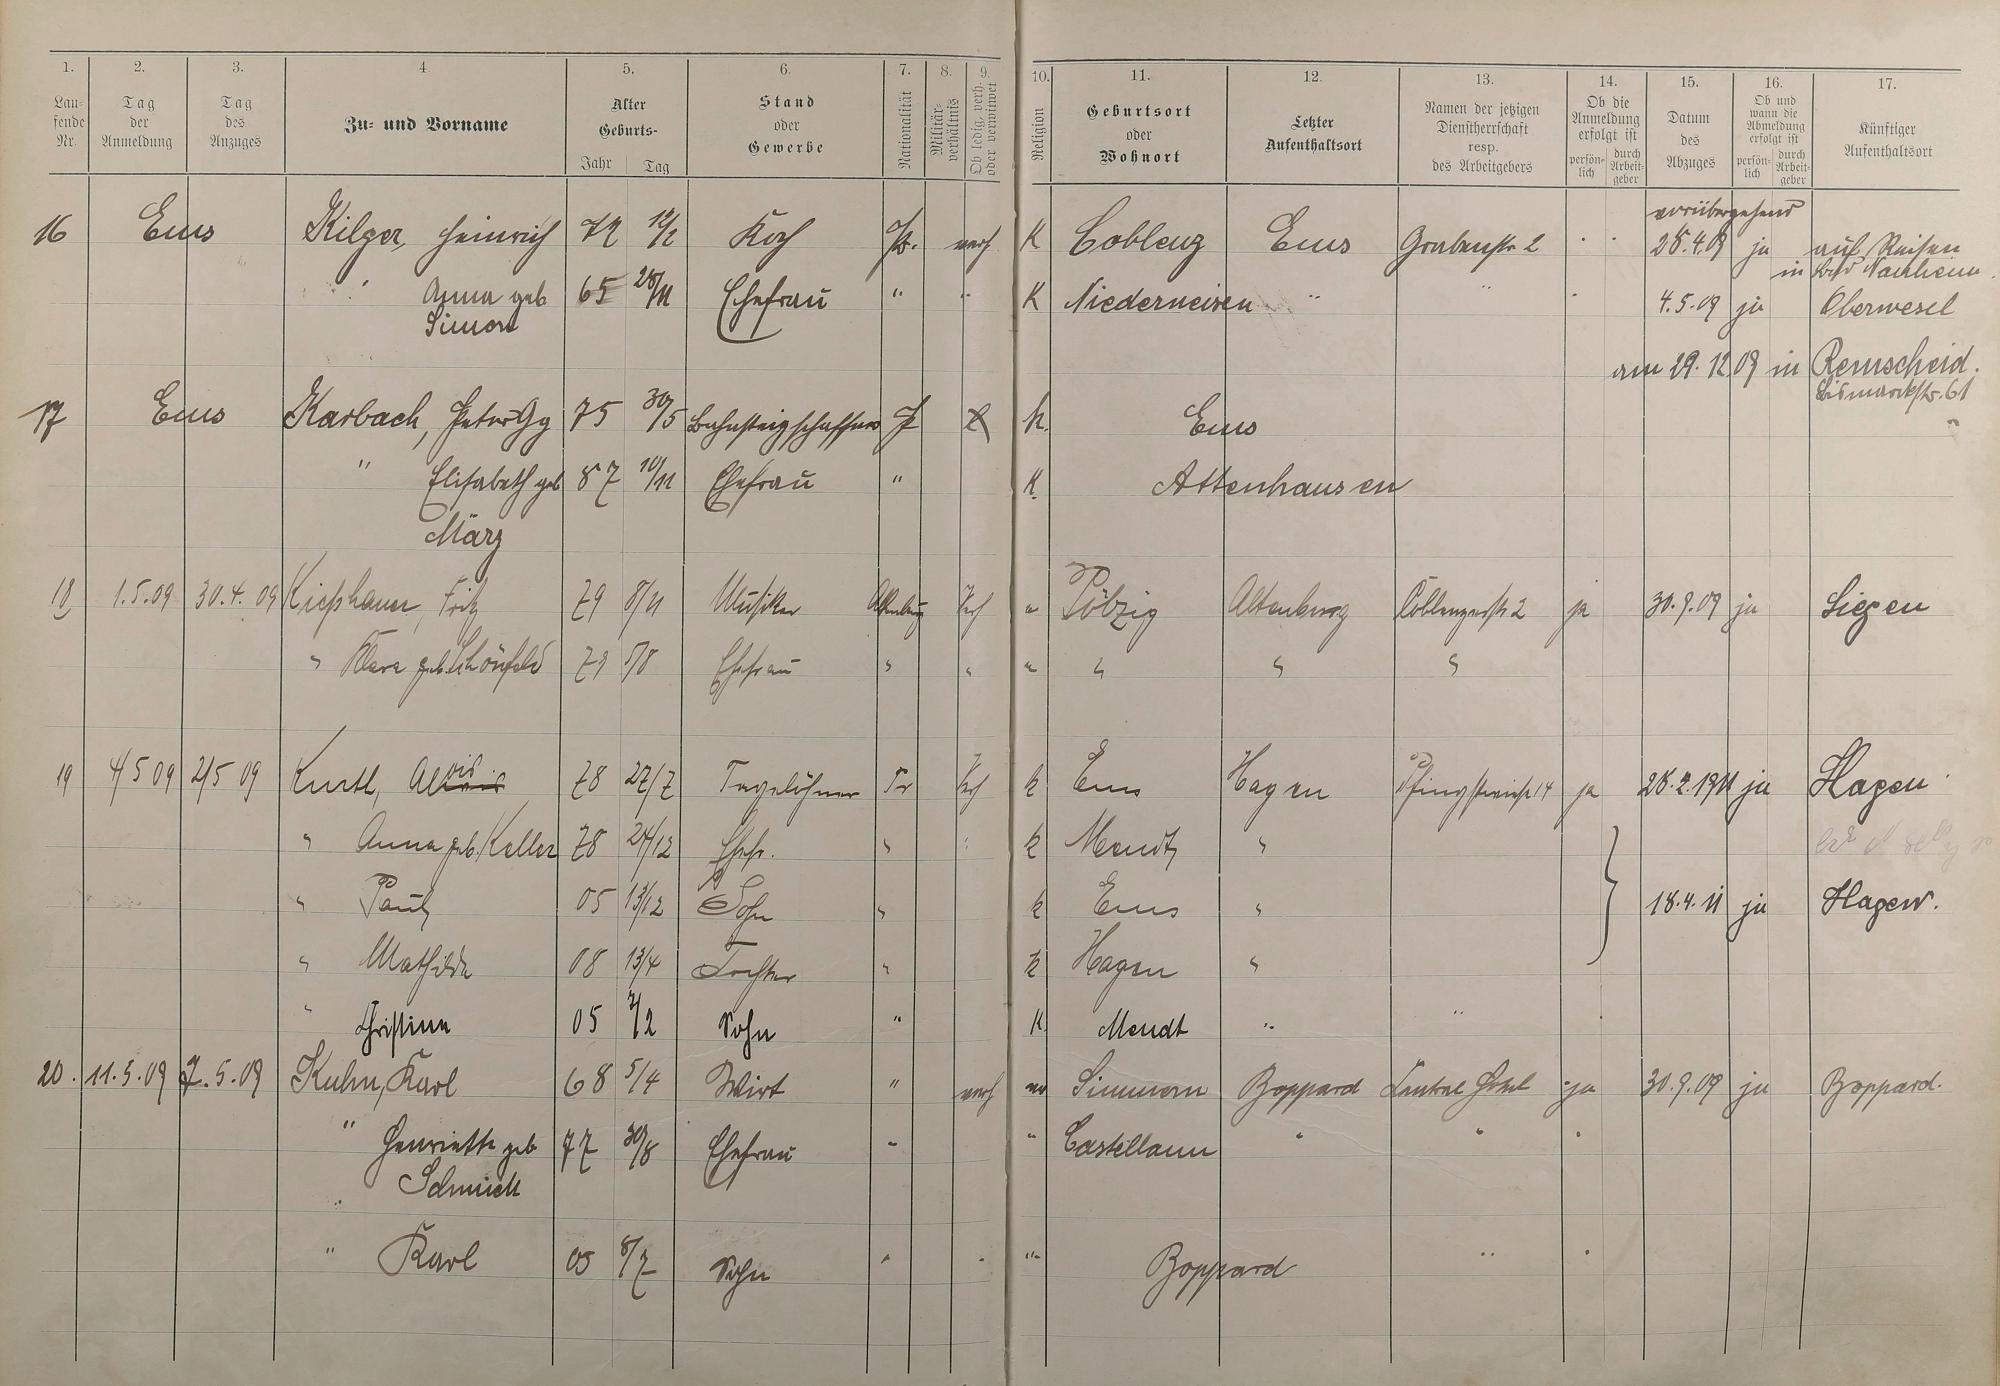 1. 2. 3. 4 5. 6. 7. 8. 9. 10. 11. 12. 13. 14. 15. 16. 17.
Lau-
fende
Nr.
Tag
der
Anmeldung
Tag
des
Anzuges
Zu- und Vorname
Alter
Geburts-
Jahr Tag
Stand
oder
Gewerbe
Nationalität
Militär-
verhältnis
Ob ledig, verh.
oder verwitwet
Religion
Geburtsort
oder
Wohnort
Letzter
Aufenthaltsort
Namen der jetzigen
Dienstherrschaft
resp.
des Arbeitgebers
Ob die
Anmeldung
erfolgt ist
persön-
lich
durch
Arbeit-
geber
Datum
des
Abzuges
Ob und
wann die
Abmeldung
erfolgt ist
persön-
lich
durch
Arbeit-
geber
Künftiger
Aufenthaltsort
vorübergehend
16 Ems Kilger, Heinrich 72 12/2 Koch Pr. verh K Coblenz Ems Grabenstr 2 28.4.09 ja auf Reisen
in Bad Nauheim.
" Anna geb 65 28/11 Ehefrau " " K Niederneisen " " 4.5.09 ja Oberwesel
Simon
am 29.12.09 in Remscheid.
Bismarckstr. 61
17 Ems Karbach, Peter Gg 75 30/5 Bahnsteigschaffner P k. Ems
" Elisabeth geb 87 10/11 Ehefrau " K. Attenhausen
März
18 1.5.09 30.4.09 Kießhauer, Fritz 79 8/11 Musiker Altenburg Verh " Pölzig Altenburg Coblenzerstr 2 ja 30.9.09 ja Siegen
" Klara geb. Schönfeld 79 5/8 Ehefrau " " " " " "
19 4/5 09 2/5 09 Kurtl, Alois 78 27/7 Tagelöhner Pr Verh k Ems Hagen Pfingstwiese 14 ja 28.2.1911 ja Hagen
" Anna geb. Keller 78 24/12 Ehefr. " " k Mendt "
" Paul 05 13/12 Sohn " k Ems " 18.4.11 ja Hagen.
" Mathilde 08 13/4 Tochter " k Hagen "
" Christian 05 2/2 Sohn " K Mendt " "
20. 11.5.09 7.5.09 Kuhn, Karl 68 5/4 Wirt " verh ev Simmern Boppard Central Hotel ja 30.9.09 ja Boppard.
" Henriette geb 77 30/8 Ehefrau " " Castellaun " "
" Schmidt
" Karl 05 8/7 Sohn " " " Boppard "